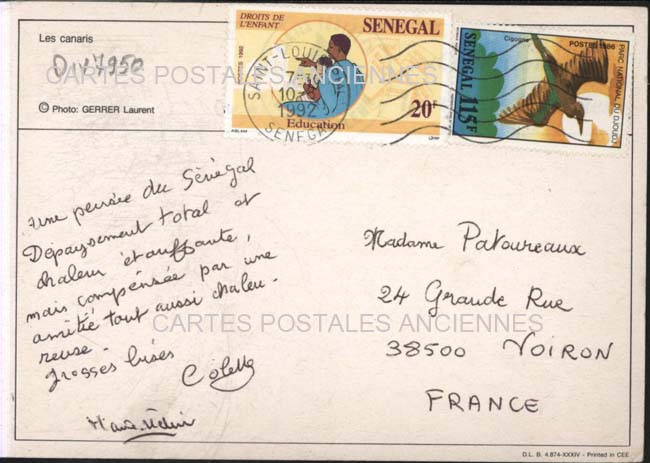 Les canaris
Div7950
© Photo: GERRER Laurent
DROITS DE L'ENFANT
SENEGAL
POSTES 1992
20F
Education
SAINT-LOUIS
7
10
1992
SENEGAL
Cigogne
POSTES 1986
SENEGAL 115F
PARC NATIONAL DU DJOUDJ
CARTES POSTALES ANCIENNES
Une pensée du Sénégal
Dépaysement total et
chaleur étouffante,
mais compensée par une
amitié tout aussi chaleu-
reuse.
Grosses bises
Colette
Madame Patoureaux
24 Grande Rue
38500 VOIRON
FRANCE
CARTES POSTALES ANCIENNES
D.L. B. 4.874-XXXIV - Printed in CEE